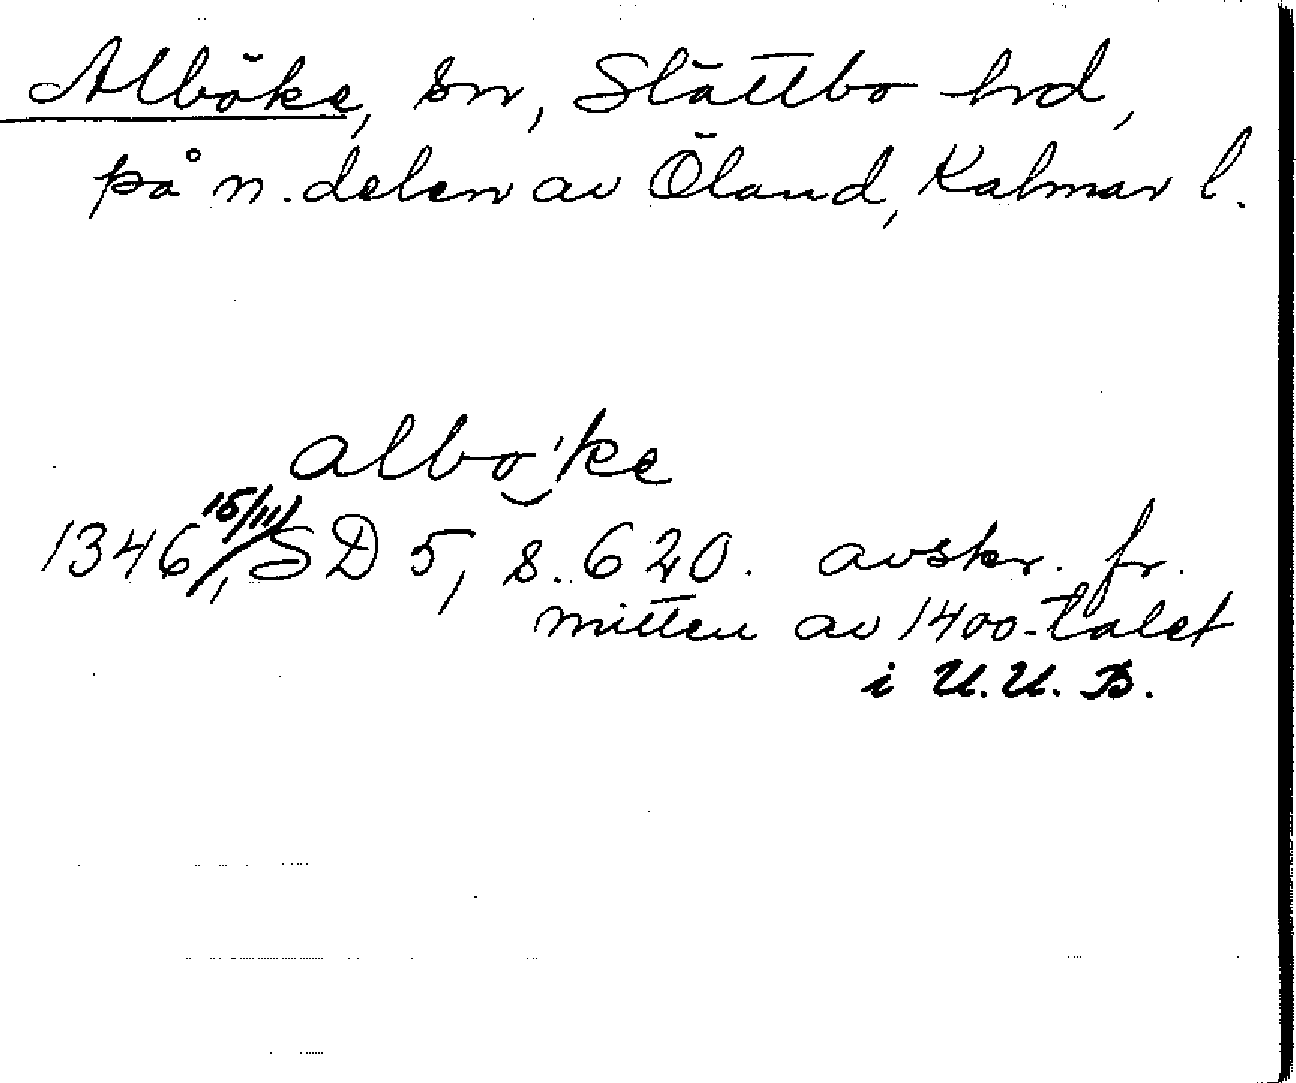 Alböke, sn, Slättbo hrd,
på n. delen av Öland, Kalmar l.
albo'ke
1346 15/11, SD 5, s. 620. avskr. fr.
mitten av 1400-talet
i U.U.B.